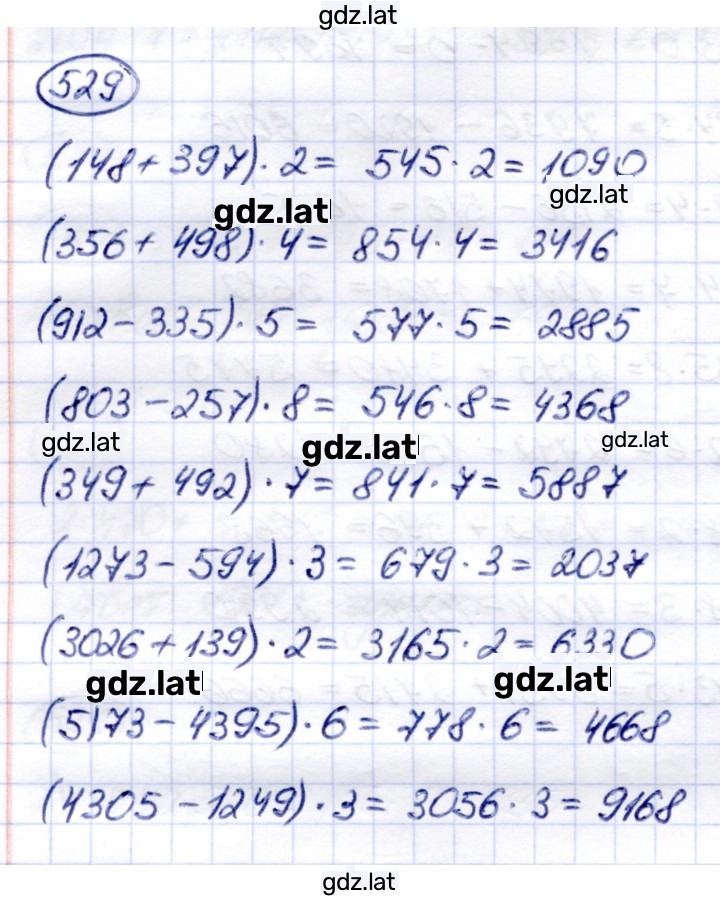 gdz.lat
529
(148 + 397) · 2 = 545 · 2 = 1090
gdz.lat
gdz.lat
(356 + 498) · 4 = 854 · 4 = 3416
(912 - 335) · 5 = 577 · 5 = 2885
(803 - 257) · 8 = 546 · 8 = 4368
gdz.lat gdz.lat gdz.lat
(349 + 492) · 7 = 841 · 7 = 5887
(1273 - 594) · 3 = 679 · 3 = 2037
(3026 + 139) · 2 = 3165 · 2 = 6330
gdz.lat gdz.lat
(5173 - 4395) · 6 = 778 · 6 = 4668
(4305 - 1249) · 3 = 3056 · 3 = 9168
gdz.lat